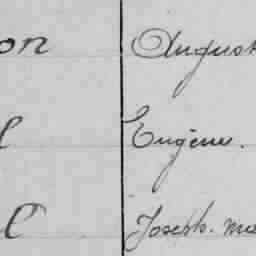 on August
l Eugène.
l Joseph. ma